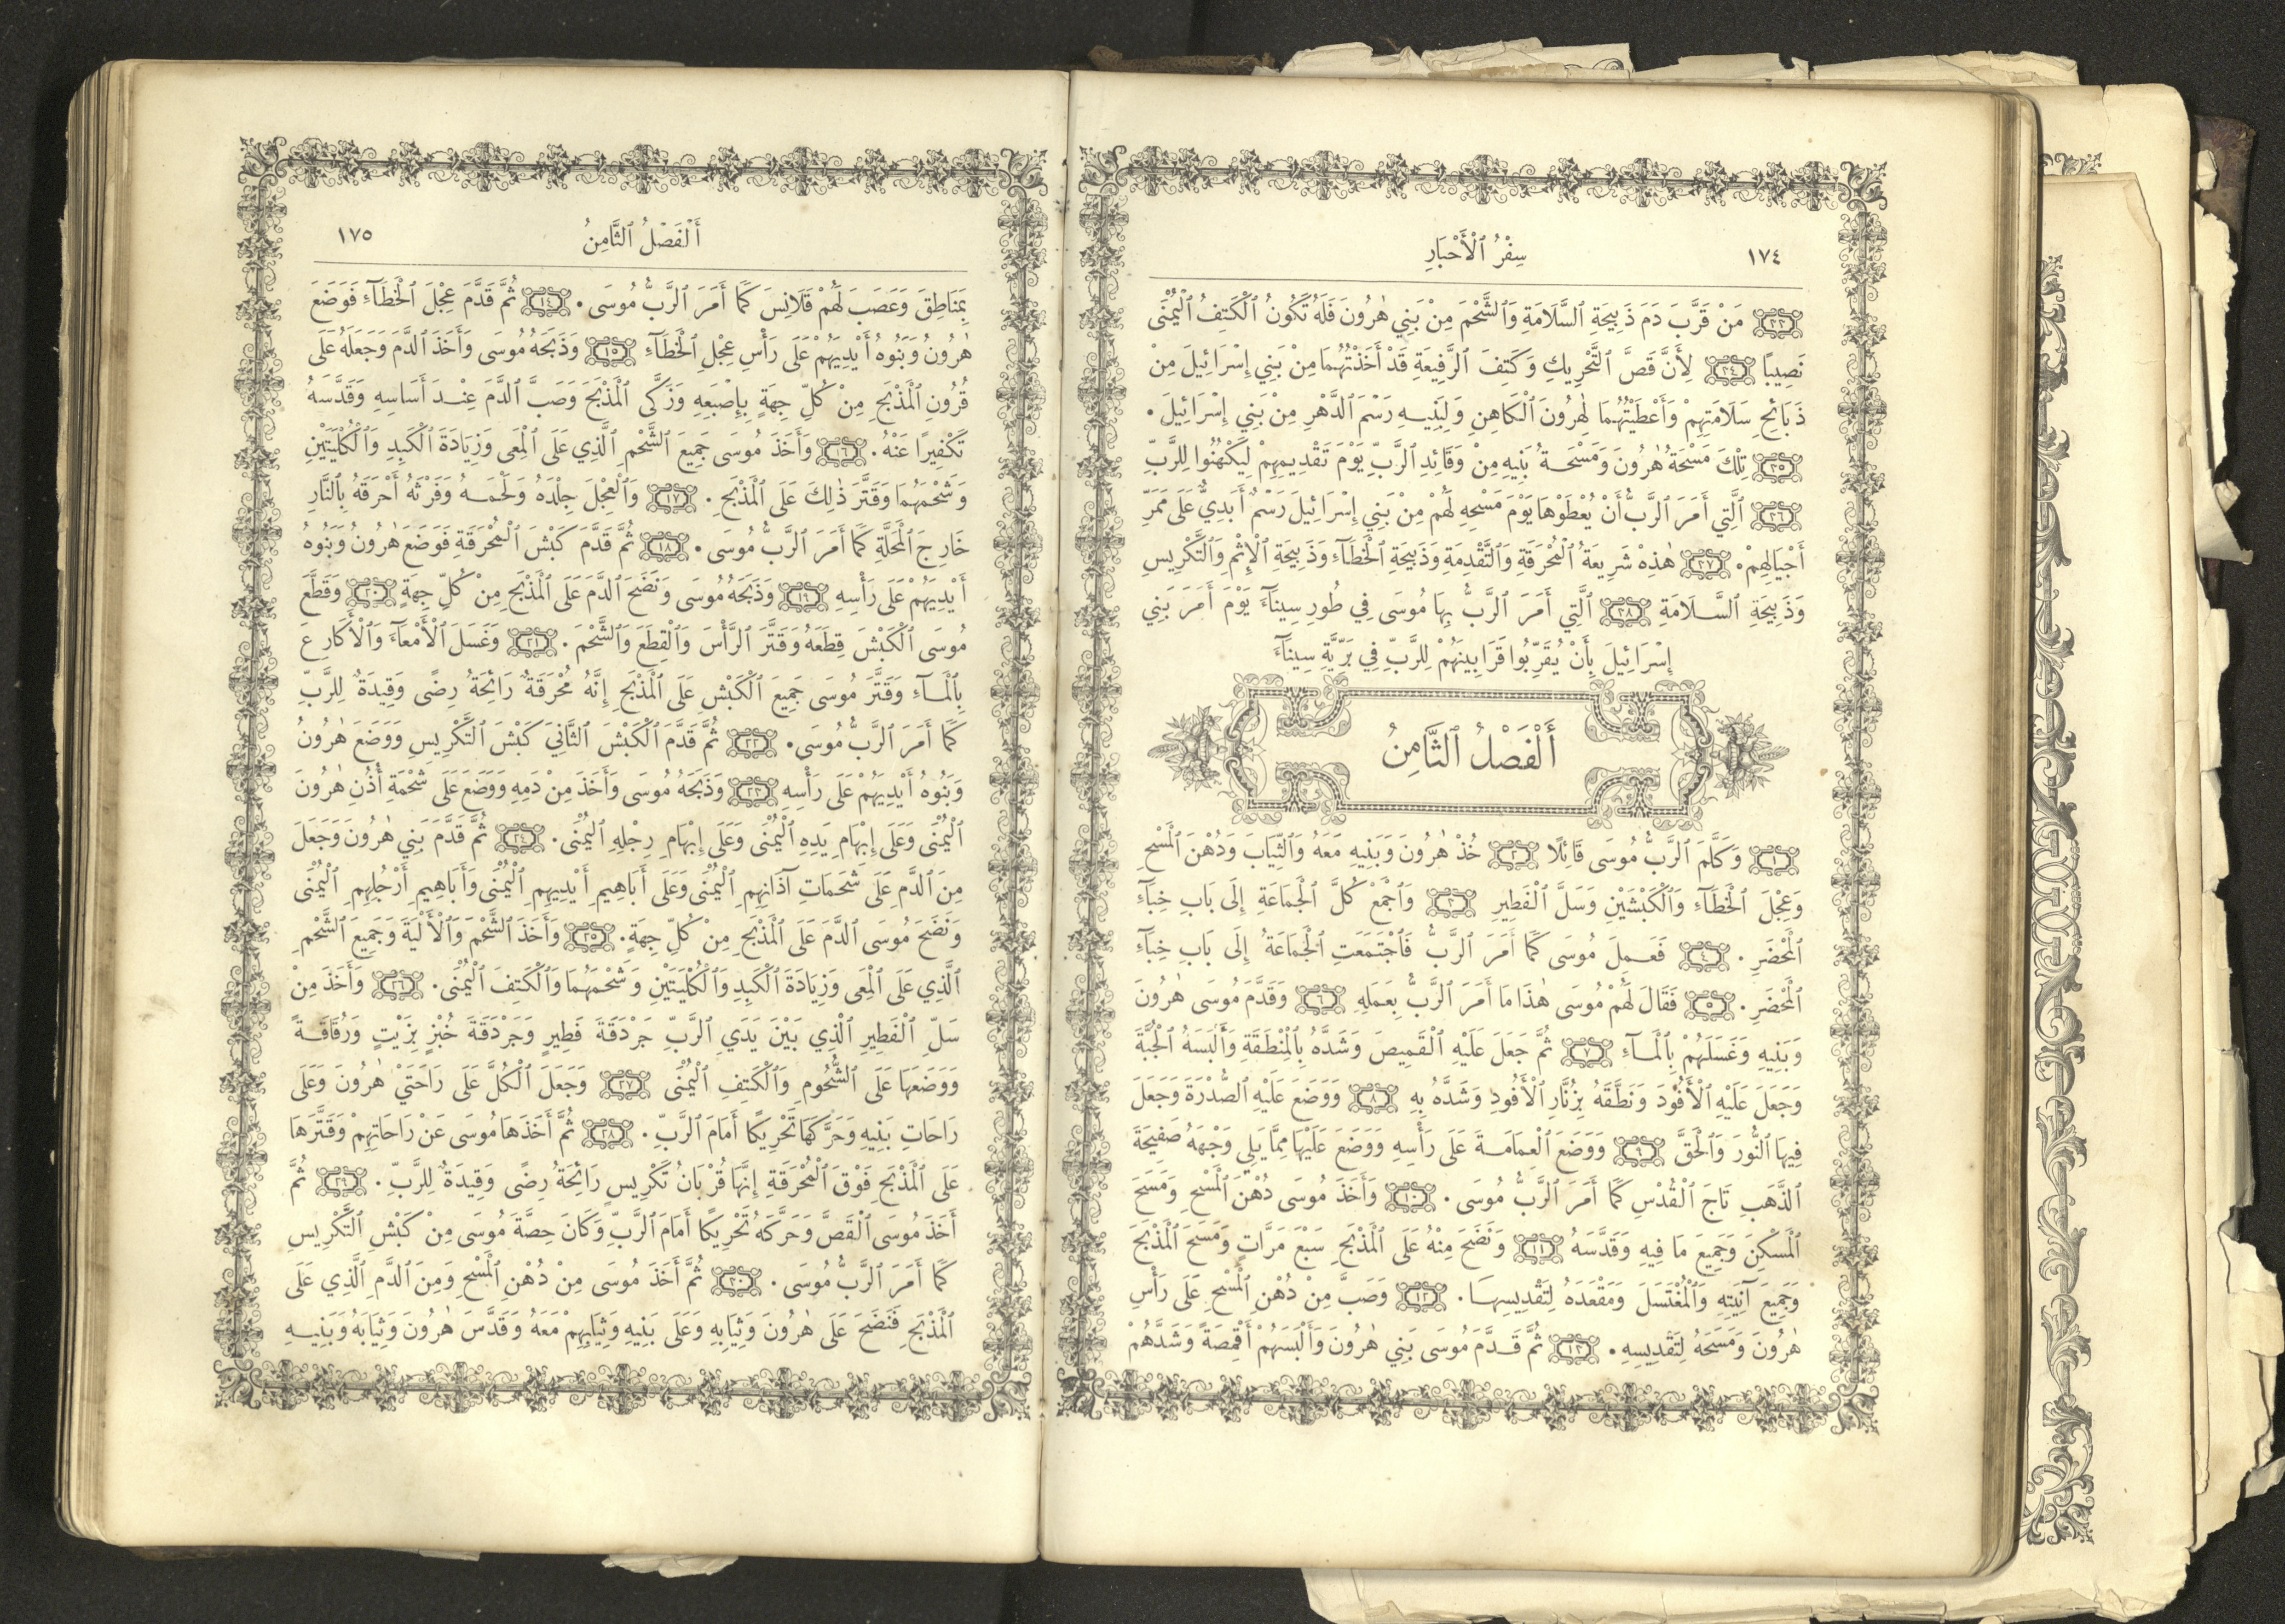 ١٧٤ سِفْرُ ٱلْأَحْبَارِ
٣٣ مَنْ قَرَّبَ دَمَ ذَبِيحَةِ ٱلسَّلَامَةِ وَٱلشَّحْمَ مِنْ بَنِي هٰرُونَ فَلَهُ تَكُونُ ٱلْكَتِفُ ٱلْيُمْنَى
نَصِيبًا ٣٤ لِأَنَّ قَصَّ ٱلتَّحْرِيكِ وَكَتِفَ ٱلرَّفِيعَةِ قَدْ أَخَذْتُهُمَا مِنْ بَنِي إِسْرَائِيلَ مِنْ
ذَبَائِحِ سَلَامَتِهِمْ وَأَعْطَيْتُهُمَا لِهٰرُونَ ٱلْكَاهِنِ وَلِبَنِيهِ رَسْمَ ٱلدَّهْرِ مِنْ بَنِي إِسْرَائِيلَ.
٣٥ تِلْكَ مَسْحَةُ هٰرُونَ وَمَسْحَةُ بَنِيهِ مِنْ وَقَائِدِ ٱلرَّبِّ يَوْمَ تَقْدِيمِهِمْ لِيَكْهَنُوا لِلرَّبِّ
٣٦ ٱلَّتِي أَمَرَ ٱلرَّبُّ أَنْ يُعْطَوْهَا يَوْمَ مَسْحِهِ لَهُمْ مِنْ بَنِي إِسْرَائِيلَ رَسْمٌ أَبَدِيٌّ عَلَى مَمَرِّ
أَجْيَالِهِمْ. ٣٧ هٰذِهْ شَرِيعَةُ ٱلْمُحْرَقَةِ وَٱلتَّقْدِمَةِ وَذَبِيحَةِ ٱلْخَطَآءِ وَذَبِيحَةِ ٱلْإِثْمِ وَٱلتَّكْرِيسِ
وَذَبِيحَةِ ٱلسَّلَامَةِ ٣٨ ٱلَّتِي أَمَرَ ٱلرَّبُّ بِهَا مُوسَى فِي طُورِ سِينَآءَ يَوْمَ أَمَرَ بَنِي
إِسْرَائِيلَ بِأَنْ يُقَرِّبُوا قَرَابِينَهُمْ لِلرَّبِّ فِي بَرِّيَّةِ سِينَآءَ
أَلْفَصْلُ ٱلثَّامِنُ
١ وَكَلَّمَ ٱلرَّبُّ مُوسَى قَائِلًا ٢ خُذْ هٰرُونَ وَبَنِيهِ مَعَهُ وَٱلثِّيَابَ وَدُهْنَ ٱلْمَسْحِ
وَعِجْلَ ٱلْخَطَآءِ وَٱلْكَبْشَيْنِ وَسَلَّ ٱلْفَطِيرِ ٣ وَٱجْمَعْ كُلَّ ٱلْجَمَاعَةِ إِلَى بَابِ خِبَآءِ
ٱلْمَحْضَرِ. ٤ فَعَمِلَ مُوسَى كَمَا أَمَرَ ٱلرَّبُّ فَٱجْتَمَعَتِ ٱلْجَمَاعَةُ إِلَى بَابِ خِبَآءِ
ٱلْمَحْضَرِ. ٥ فَقَالَ لَهُمْ مُوسَى هٰذَا مَا أَمَرَ ٱلرَّبُّ بِعَمَلِهِ ٦ وَقَدَّمَ مُوسَى هٰرُونَ
وَبَنِيهِ وَغَسَلَهُمْ بِٱلْمَآءِ ٧ ثُمَّ جَعَلَ عَلَيْهِ ٱلْقَمِيصَ وَشَدَّهُ بِٱلْمِنْطَقَةِ وَأَلْبَسَهُ ٱلْجُبَّةَ
وَجَعَلَ عَلَيْهِ ٱلْأَفُودَ وَنَطَّقَهُ بِزُنَّارِ ٱلْأَفُودِ وَشَدَّهُ بِهِ ٨ وَوَضَعَ عَلَيْهِ ٱلصُّدْرَةَ وَجَعَلَ
فِيهَا ٱلنُّورَ وَٱلْحَقَّ ٩ وَوَضَعَ ٱلْعِمَامَةَ عَلَى رَأْسِهِ وَوَضَعَ عَلَيْهَا مِمَّا يَلِي وَجْهَهُ صَفِيحَةَ
ٱلذَّهَبِ تَاجَ ٱلْقُدْسِ كَمَا أَمَرَ ٱلرَّبُّ مُوسَى. ١٠ وَأَخَذَ مُوسَى دُهْنَ ٱلْمَسْحِ وَمَسَحَ
ٱلْمَسْكِنَ وَجَمِيعَ مَا فِيهِ وَقَدَّسَهُ ١١ وَنَضَحَ مِنْهُ عَلَى ٱلْمَذْبَحِ سَبْعَ مَرَّاتٍ وَمَسَحَ ٱلْمَذْبَحَ
وَجَمِيعَ آنِيَتِهِ وَٱلْمُغْتَسَلَ وَمَقْعَدَهُ لِتَقْدِيسِهَا. ١٢ وَصَبَّ مِنْ دُهْنِ ٱلْمَسْحِ عَلَى رَأْسِ
هٰرُونَ وَمَسَحَهُ لِتَقْدِيسِهِ. ١٣ ثُمَّ قَدَّمَ مُوسَى بَنِي هٰرُونَ وَأَلْبَسَهُمْ أَقْمِصَةً وَشَدَّهُمْ
أَلْفَصْلُ ٱلثَّامِنُ ١٧٥
بِمَنَاطِقَ وَعَصَبَ لَهُمْ قَلَانِسَ كَمَا أَمَرَ ٱلرَّبُّ مُوسَى. ١٤ ثُمَّ قَدَّمَ عِجْلَ ٱلْخَطَآءِ فَوَضَعَ
هٰرُونُ وَبَنُوهُ أَيْدِيَهُمْ عَلَى رَأْسِ عِجْلِ ٱلْخَطَآءِ ١٥ وَذَبَحَهُ مُوسَى وَأَخَذَ ٱلدَّمَ وَجَعَلَهُ عَلَى
قُرُونِ ٱلْمَذْبَحِ مِنْ كُلِّ جِهَةٍ بِإِصْبَعِهِ وَزَكَّى ٱلْمَذْبَحَ وَصَبَّ ٱلدَّمَ عِنْدَ أَسَاسِهِ وَقَدَّسَهُ
تَكْفِيرًا عَنْهُ. ١٦ وَأَخَذَ مُوسَى جَمِيعَ ٱلشَّحْمِ ٱلَّذِي عَلَى ٱلْمِعَى وَزِيَادَةَ ٱلْكَبِدِ وَٱلْكُلْيَتَيْنِ
وَشَحْمَهُمَا وَقَتَّرَ ذٰلِكَ عَلَى ٱلْمَذْبَحِ. ١٧ وَٱلْعِجْلَ جِلْدَهُ وَلَحْمَهُ وَفَرْثَهُ أَحْرَقَهُ بِٱلنَّارِ
خَارِجَ ٱلْمَحَلَّةِ كَمَا أَمَرَ ٱلرَّبُّ مُوسَى. ١٨ ثُمَّ قَدَّمَ كَبْشَ ٱلْمُحْرَقَةِ فَوَضَعَ هٰرُونُ وَبَنُوهُ
أَيْدِيَهُمْ عَلَى رَأْسِهِ ١٩ وَذَبَحَهُ مُوسَى وَنَضَحَ ٱلدَّمَ عَلَى ٱلْمَذْبَحِ مِنْ كُلِّ جِهَةٍ ٢٠ وَقَطَّعَ
مُوسَى ٱلْكَبْشَ قِطَعَهُ وَقَتَّرَ ٱلرَّأْسَ وَٱلْقِطَعَ وَٱلشَّحْمَ. ٢١ وَغَسَلَ ٱلْأَمْعَآءَ وَٱلْأَكَارِعَ
بِٱلْمَآءِ وَقَتَّرَ مُوسَى جَمِيعَ ٱلْكَبْشِ عَلَى ٱلْمَذْبَحِ إِنَّهُ مُحْرَقَةٌ رَائِحَةُ رِضًى وَقِيدَةٌ لِلرَّبِّ
كَمَا أَمَرَ ٱلرَّبُّ مُوسَى. ٢٢ ثُمَّ قَدَّمَ ٱلْكَبْشَ ٱلثَّانِيَ كَبْشَ ٱلتَّكْرِيسِ وَوَضَعَ هٰرُونُ
وَبَنُوهُ أَيْدِيَهُمْ عَلَى رَأْسِهِ ٢٣ وَذَبَحَهُ مُوسَى وَأَخَذَ مِنْ دَمِهِ وَوَضَعَ عَلَى شَحْمَةِ أُذُنِ هٰرُونَ
ٱلْيُمْنَى وَعَلَى إِبْهَامِ يَدِهِ ٱلْيُمْنَى وَعَلَى إِبْهَامِ رِجْلِهِ ٱلْيُمْنَى. ٢٤ ثُمَّ قَدَّمَ بَنِي هٰرُونَ وَجَعَلَ
مِنَ ٱلدَّمِ عَلَى شَحَمَاتِ آذَانِهِمِ ٱلْيُمْنَى وَعَلَى أَبَاهِيمِ أَيْدِيهِمِ ٱلْيُمْنَى وَأَبَاهِيمِ أَرْجُلِهِمِ ٱلْيُمْنَى
وَنَضَحَ مُوسَى ٱلدَّمَ عَلَى ٱلْمَذْبَحِ مِنْ كُلِّ جِهَةٍ. ٢٥ وَأَخَذَ ٱلشَّحْمَ وَٱلْأَلْيَةَ وَجَمِيعَ ٱلشَّحْمِ
ٱلَّذِي عَلَى ٱلْمِعَى وَزِيَادَةَ ٱلْكَبِدِ وَٱلْكُلْيَتَيْنِ وَشَحْمَهُمَا وَٱلْكَتِفَ ٱلْيُمْنَى. ٢٦ وَأَخَذَ مِنْ
سَلِّ ٱلْفَطِيرِ ٱلَّذِي بَيْنَ يَدَيِ ٱلرَّبِّ جَرْدَقَةَ فَطِيرٍ وَجَرْدَقَةَ خُبْزٍ بِزَيْتٍ وَرُقَاقَةً
وَوَضَعَهَا عَلَى ٱلشُّحُومِ وَٱلْكَتِفِ ٱلْيُمْنَى ٢٧ وَجَعَلَ ٱلْكُلَّ عَلَى رَاحَتَيْ هٰرُونَ وَعَلَى
رَاحَاتِ بَنِيهِ وَحَرَّكَهَا تَحْرِيكًا أَمَامَ ٱلرَّبِّ. ٢٨ ثُمَّ أَخَذَهَا مُوسَى عَنْ رَاحَاتِهِمْ وَقَتَّرَهَا
عَلَى ٱلْمَذْبَحِ فَوْقَ ٱلْمُحْرَقَةِ إِنَّهَا قُرْبَانُ تَكْرِيسٍ رَائِحَةُ رِضًى وَقِيدَةٌ لِلرَّبِّ. ٢٩ ثُمَّ
أَخَذَ مُوسَى ٱلْقَصَّ وَحَرَّكَهُ تَحْرِيكًا أَمَامَ ٱلرَّبِّ وَكَانَ حِصَّةَ مُوسَى مِنْ كَبْشِ ٱلتَّكْرِيسِ
كَمَا أَمَرَ ٱلرَّبُّ مُوسَى. ٣٠ ثُمَّ أَخَذَ مُوسَى مِنْ دُهْنِ ٱلْمَسْحِ وَمِنَ ٱلدَّمِ ٱلَّذِي عَلَى
ٱلْمَذْبَحِ فَنَضَحَ عَلَى هٰرُونَ وَثِيَابِهِ وَعَلَى بَنِيهِ وَثِيَابِهِمْ مَعَهُ وَقَدَّسَ هٰرُونَ وَثِيَابَهُ وَبَنِيهِ